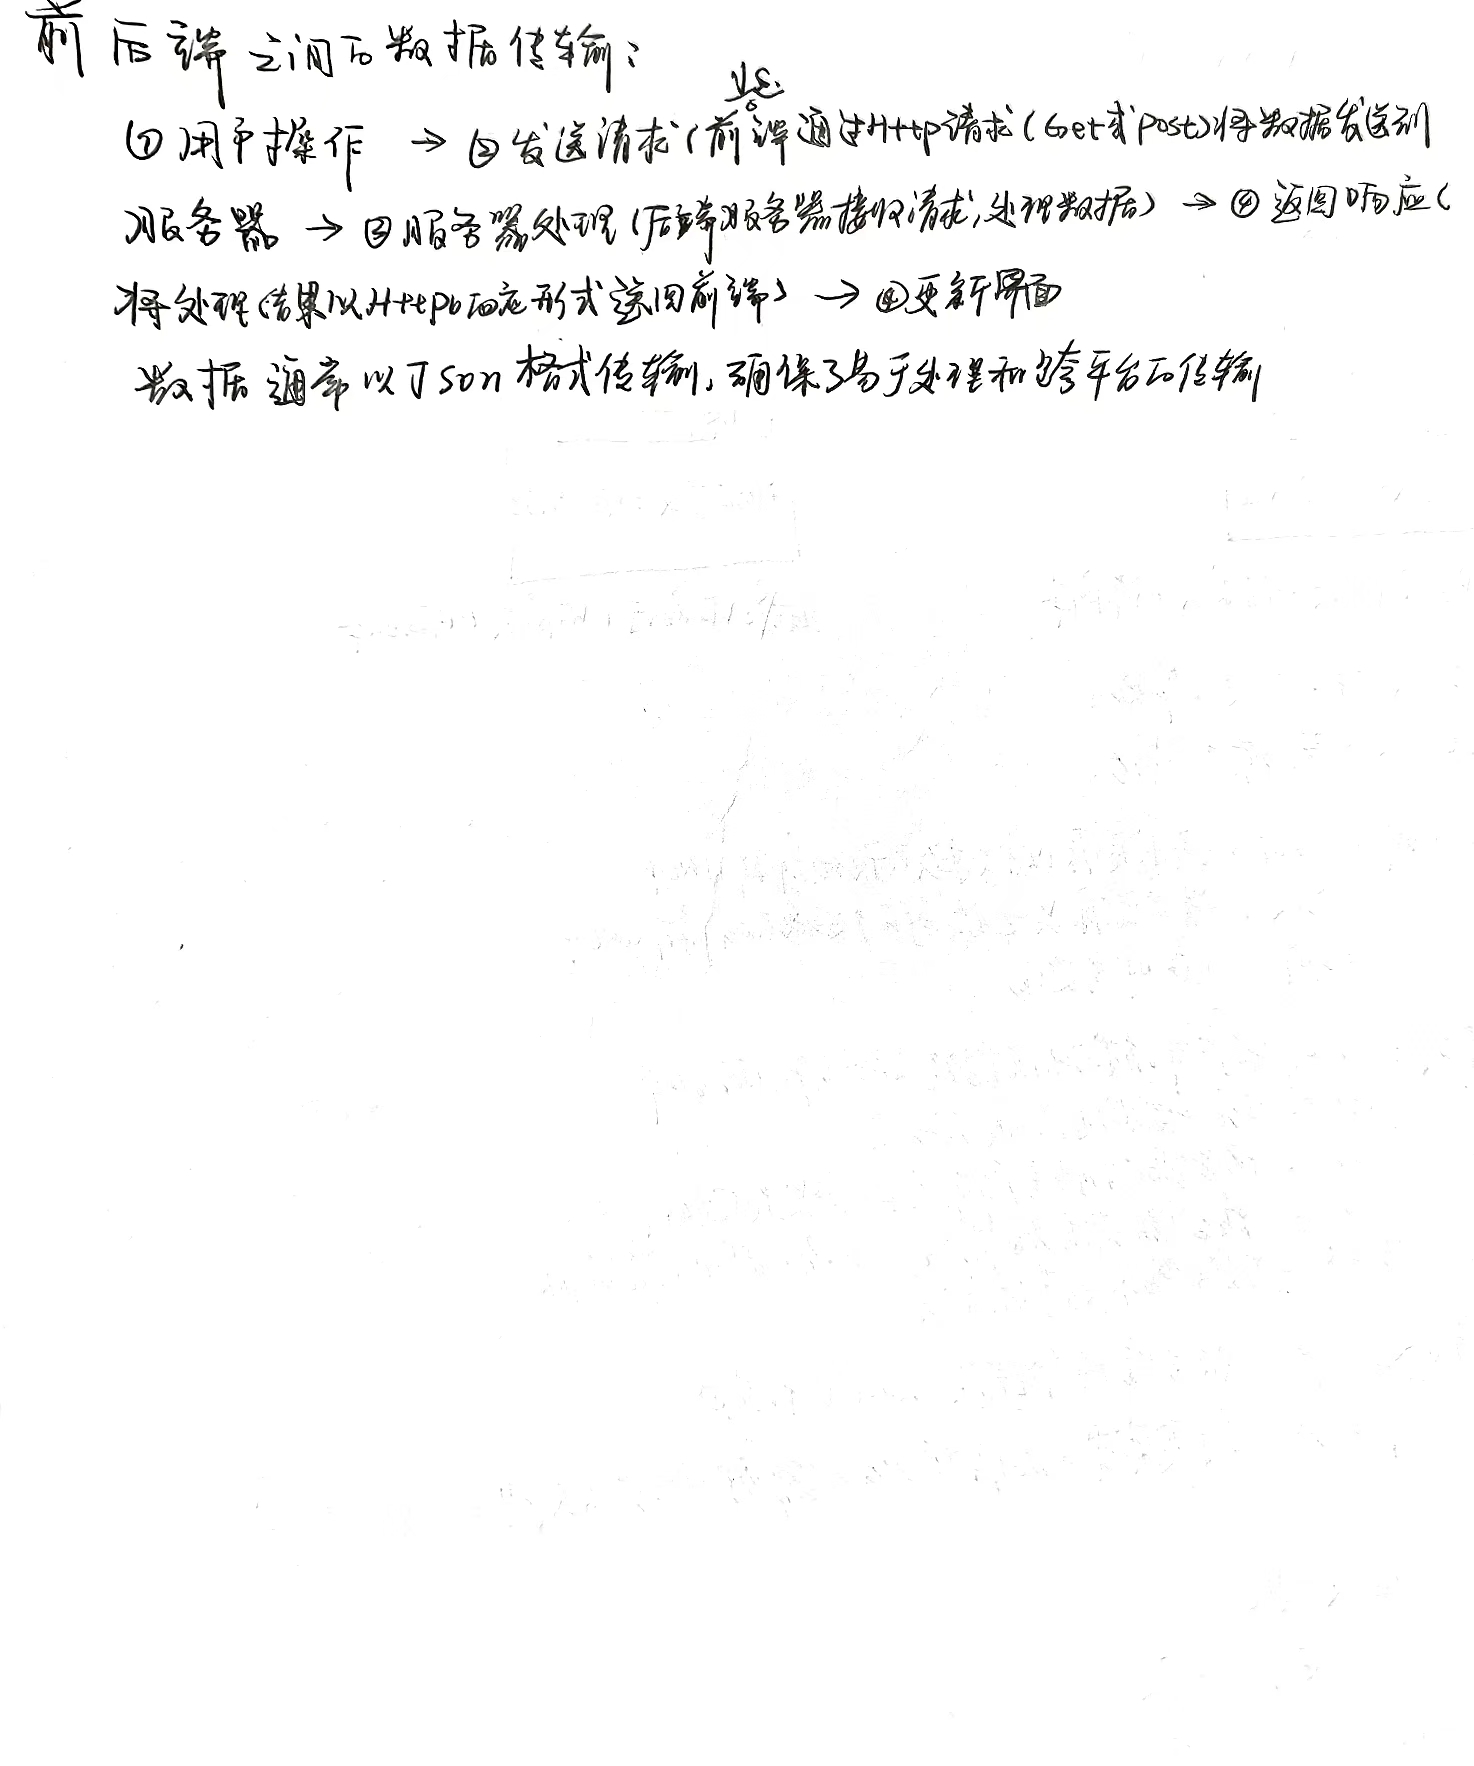 前后端之间的数据传输：
①用户操作 → ②发送请求（前端通过Http请求（Get或post）将数据发送到
服务器 → ③服务器处理（后端服务器接收请求，处理数据） → ④返回响应（
将处理结果以Http响应形式送回前端） → ④更新界面
数据通常以Json格式传输，确保了易于处理和跨平台的传输